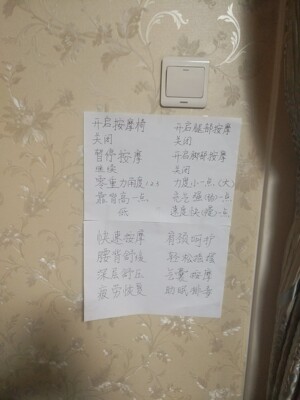 开启按摩椅
关闭
暂停按摩
继续
零重力角度1 2 3
靠背高一点
低
开启腿部按摩
关闭
开启脚部按摩
力度小一点(大)
速度快(慢)一点
快速按摩
腰背舒缓
深层舒压
疲劳恢复
肩颈呵护
轻松按揉
气囊按摩
助眠